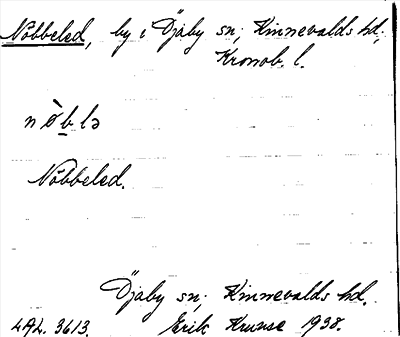 Nöbbeled, by i Öjaby sn; Kinnevalds hd;
Kronob. l.
nö̀b̲lə
Nöbbeled.
Öjaby sn; Kinnevalds hd.
LAL. 3613. Erik Kruuse 1938.